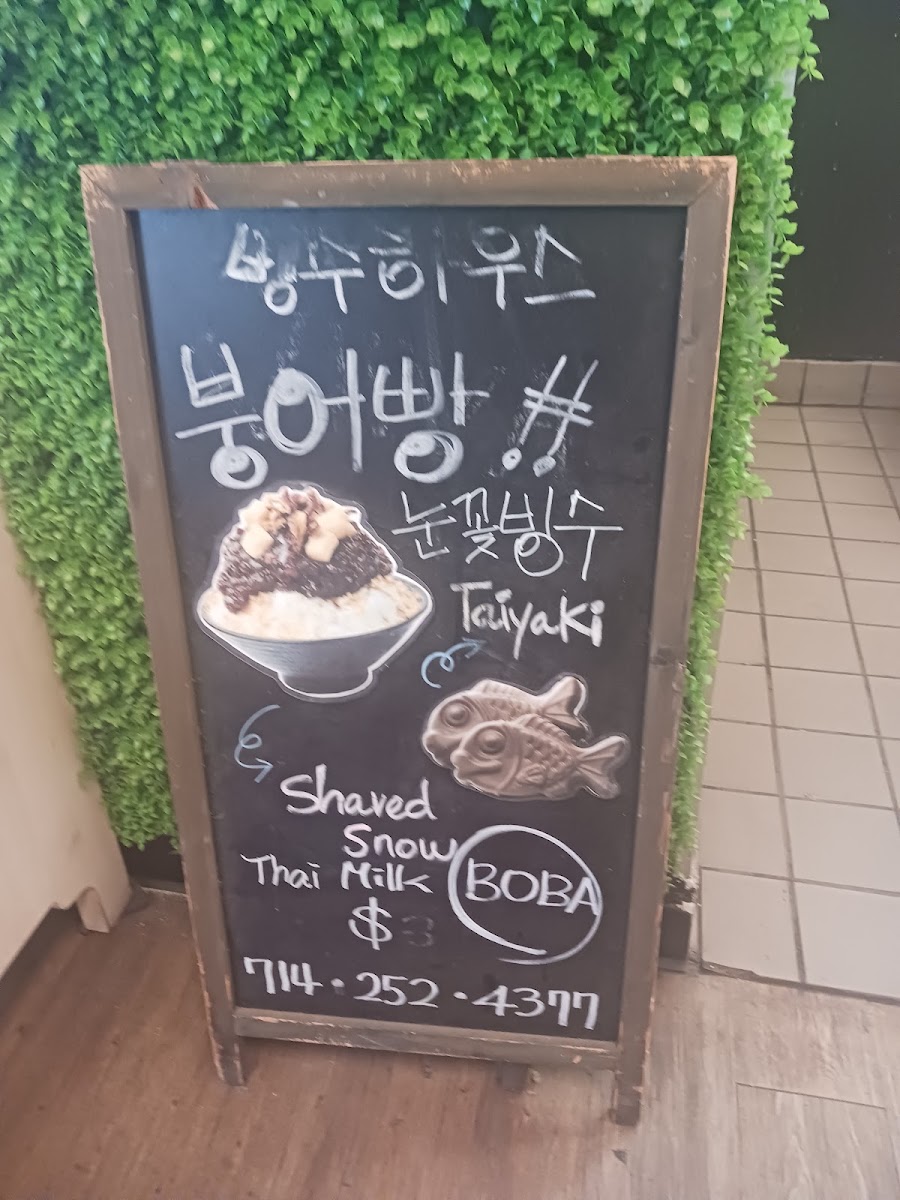 빙수하우스
붕어빵!!
눈꽃빙수
Taiyaki
Shaved
Snow
Thai Milk BOBA
$3
714·252·4377